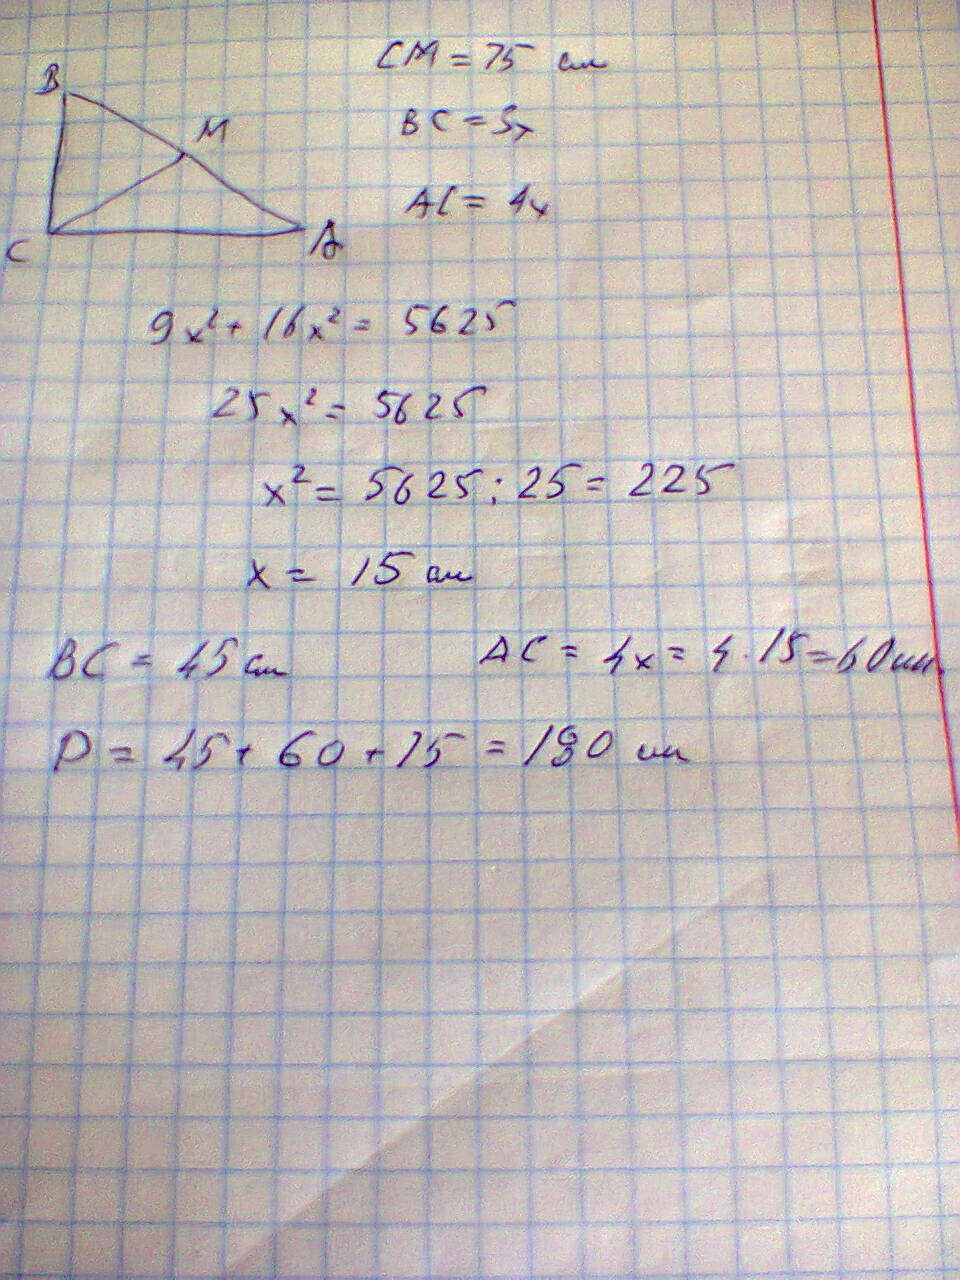 B
M
C
A
CM = 75 см
BC = 3x
AC = 4x
9x² + 16x² = 5625
25x² = 5625
x² = 5625 : 25 = 225
x = 15 см
BC = 45 см AC = 4x = 4 · 15 = 60 см.
P = 45 + 60 + 75 = 180 см